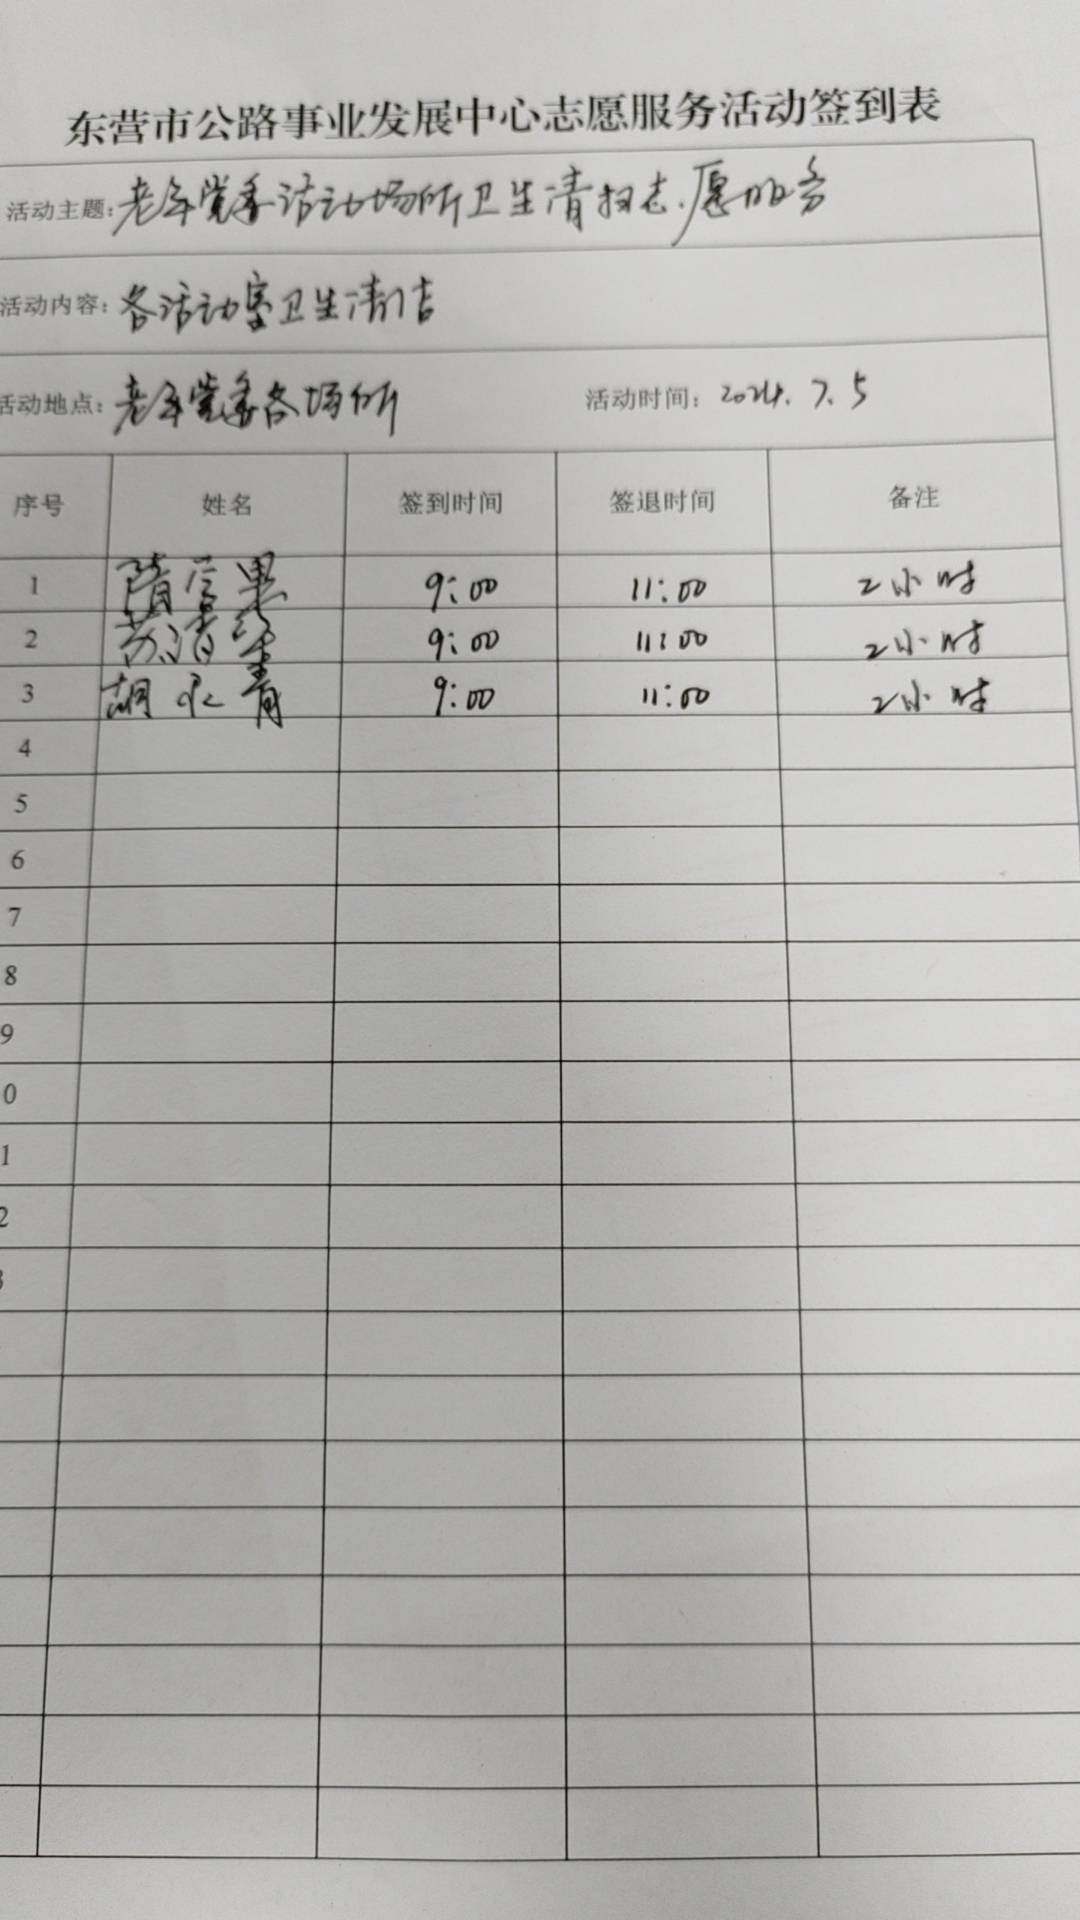 东营市公路事业发展中心志愿服务活动签到表
活动主题：老年党委活动场所卫生清扫志愿服务
活动内容：各活动室卫生清洁
活动地点：老年党委各场所 活动时间：2024.7.5
序号 姓名 签到时间 签退时间 备注
1 隋 9:00 11:00 2小时
2 苏清 9:00 11:00 2小时
3 胡永青 9:00 11:00 2小时
4
5
6
7
8
9
0
1
2
3